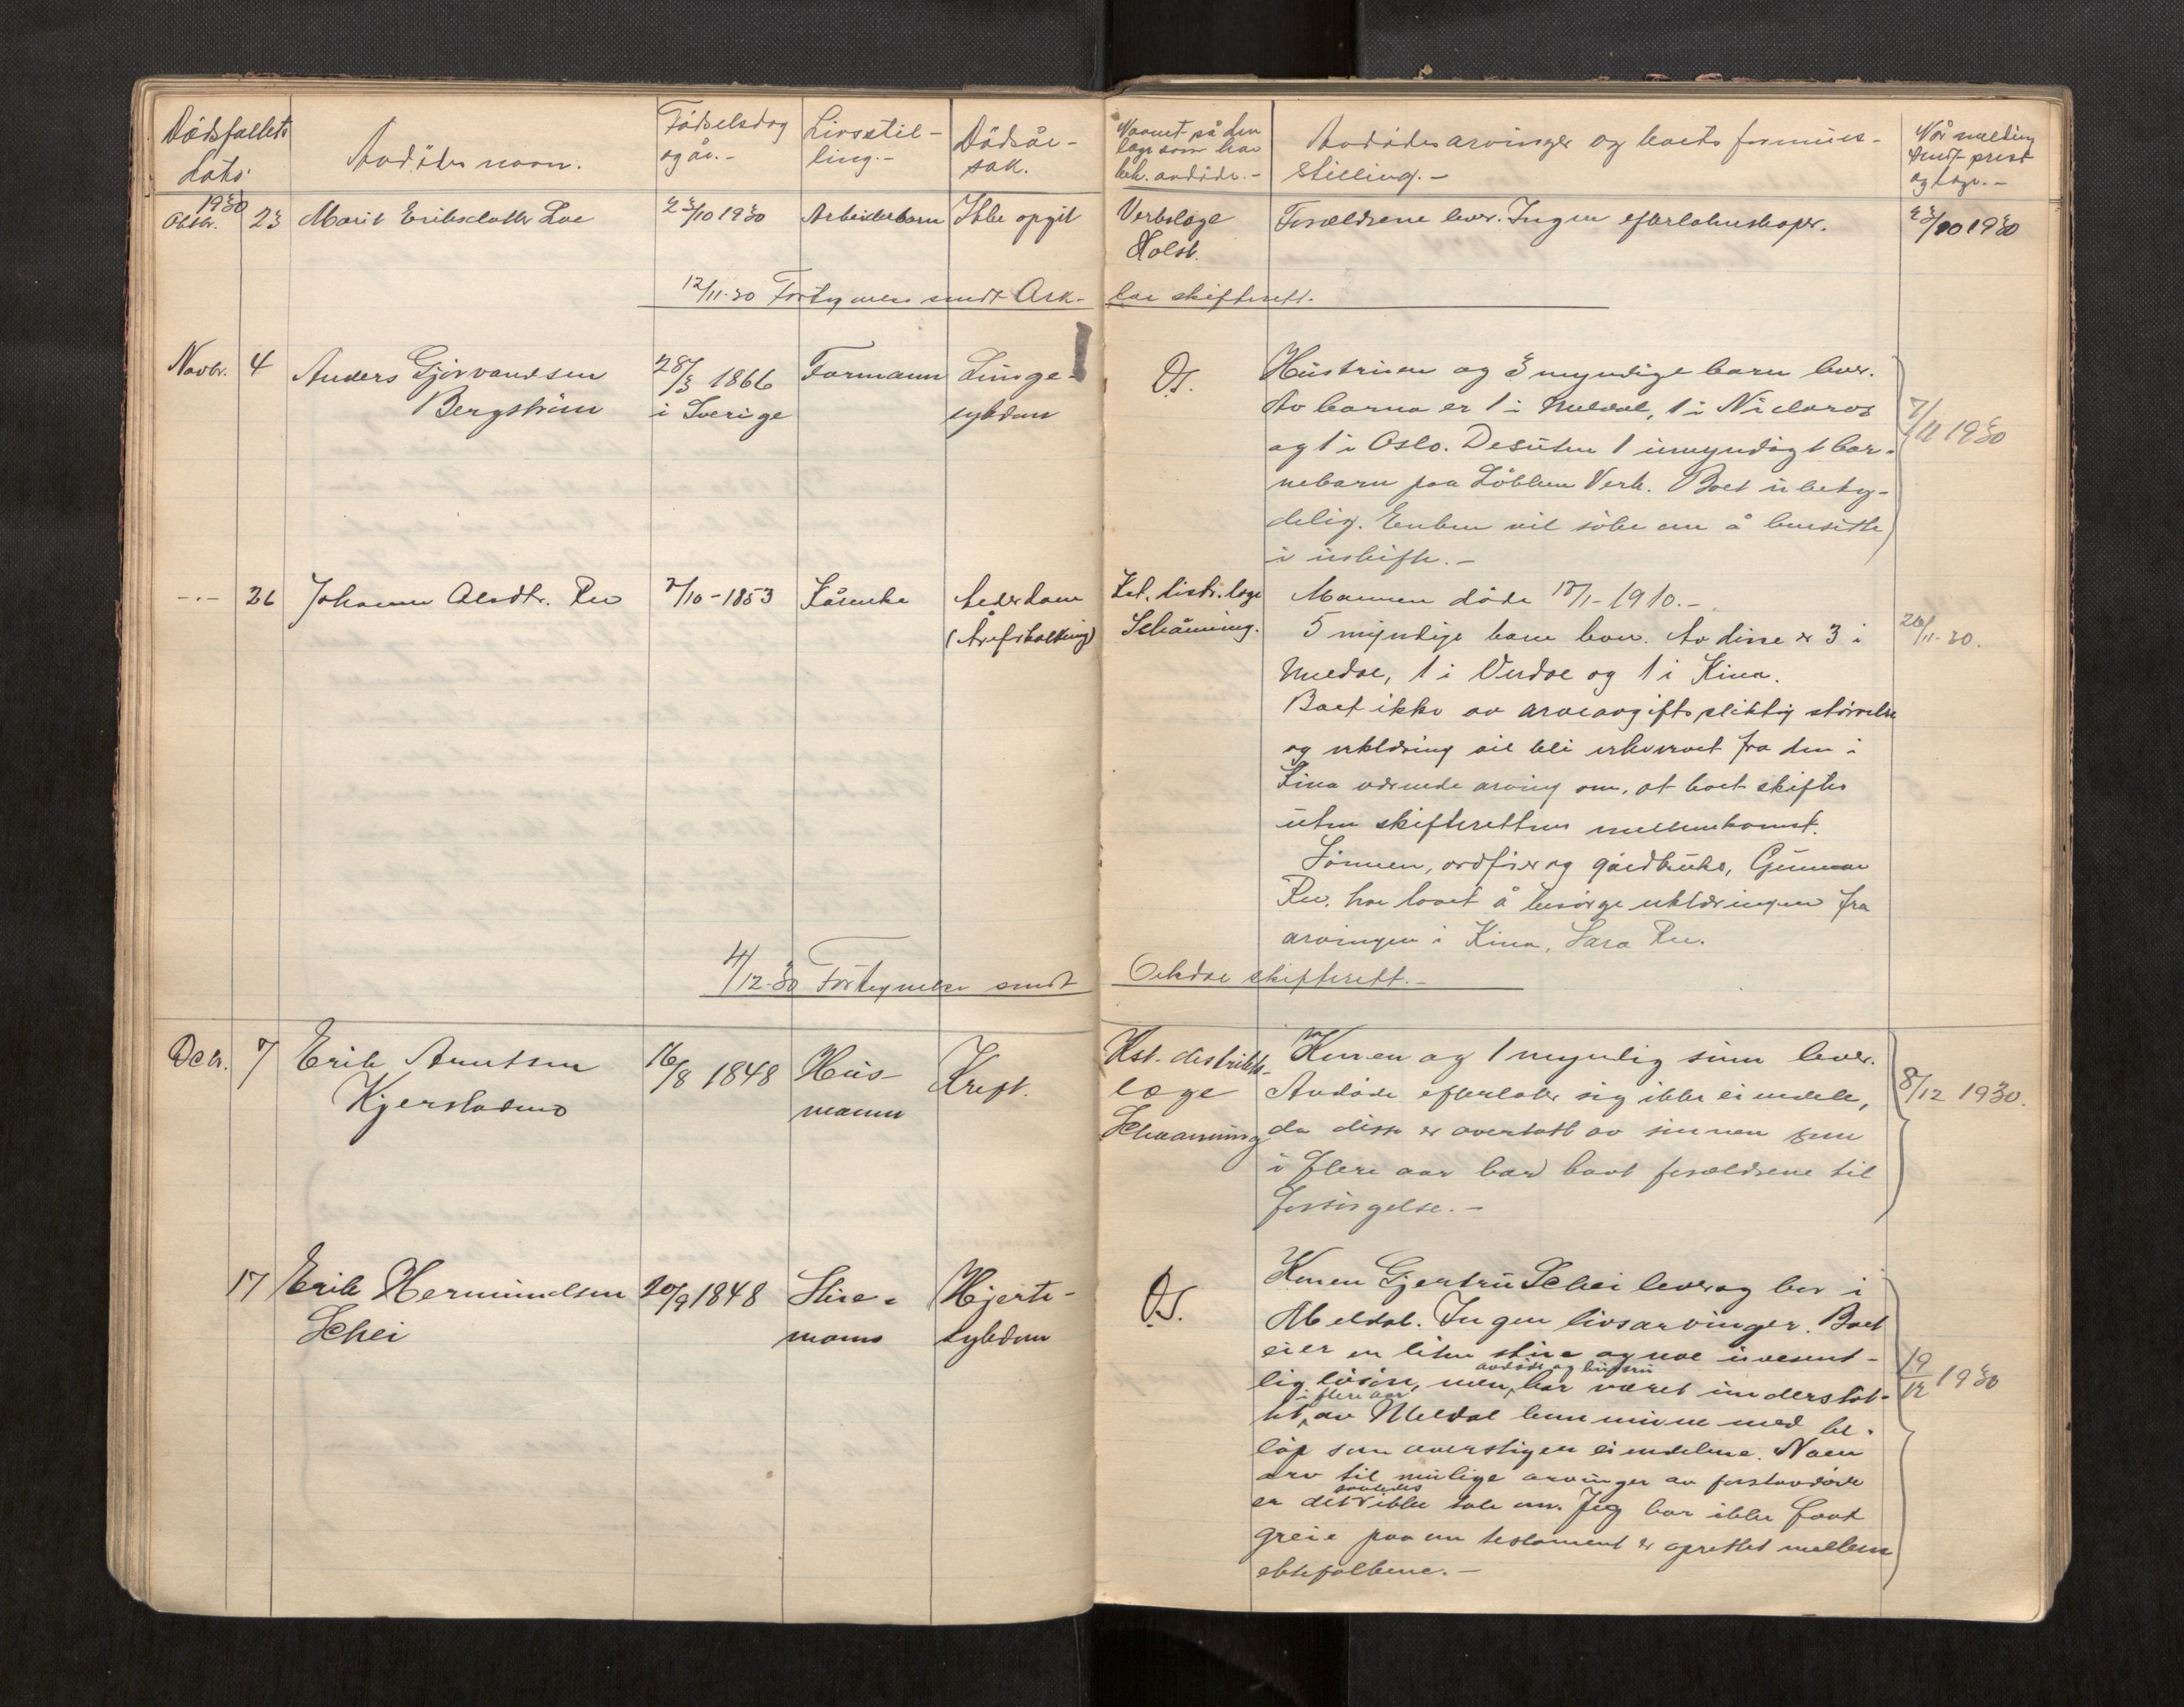 Dødsfallets dato.
Avdødes navn.
Fødselsdag og år.-
Livsstilling.-
Dødsårsak.
Navnet på den læge som har beh. avdøde.-
Avdødes arvinger og boets formuesstilling.-
Når melding sendt prest og læge.-
1930
Oktbr. 23 Marit Eriksdatter Loe 23/10 1930 Arbeiderbarn Ikke opgit
Verkslæge
Holst.
Forældrene lever. Ingen efterlatenskaper.
23/10 1930
12/11-30 Fortegnelse sendt Orkdal skifterett.
Novbr. 4 Anders
Bergström
28/3 1866
i Sverige
Formann
Lungesykdom
Do.
Hustruen og 3 myndige barn lever.
Av barna er 1 i Meldal, 1 i Nidaros
og 1 i Oslo. Desuten 1 umyndigt bar-
nebarn paa Løkken Verk. Boet ubety-
delig. Enken vil søke om å hensitte
i uskifte.-
7/11 1930
-"- 26 Johanna Olsdtr. Ree 7/10-1853 Kårenke Alderdom
(Åreforkalkning)
Kst. distr.læge
Schåning.
Mannen døde 17/1-1910.-
5 myndige barn lever. Av disse er 3 i
Meldal, 1 i Verdal og 1 i Kina.
Boet ikke av arveavgiftspliktig størrelse
og erklæring vil bli erhvervet fra den i
Kina værende arving om, at boet skiftes
uten skifterettens mellemkomst.
Sønnen, ordfører og gårdbruker, Gunnar
Ree, har lovet å besørge erklæringen fra
arvingen i Kina, Sara Ree.
26/11-30.
4/12-30 Fortegnelse sendt Orkdal skifterett.-
Debr. 7 Erik Arntsen
Kjerstadmo
16/8 1848
Hus-
mann
Kreft.
Kst. distrikts-
læge
Schaanning
Konen og 1 myndig sønn lever.
Avdøde efterlater sig ikke eiendele,
da disse er overtatt av sønnen som
i flere aar har havt forældrene til
forsørgelse.-
8/12 1930.
17 Erik Hermundsen
Schei
20/9 1848
Stue-
mann
Hjerte-
sykdom
Do.
Konen Gjertru Schei lever og bor i
Meldal. Ingen livsarvinger. Boet
eier en liten stue og noe uvesent-
lig løsøre, men avdøde og hustru har været understøt-
tet i flere aar av Meldal kommune med be-
løp som overstiger eiendelene. Noen
arv til mulige arvinger av førstavdøde
er det saaledes ikke tale om. Jeg har ikke faat
greie paa om testament er oprettet mellem
ektefolkene.-
19/12 1930